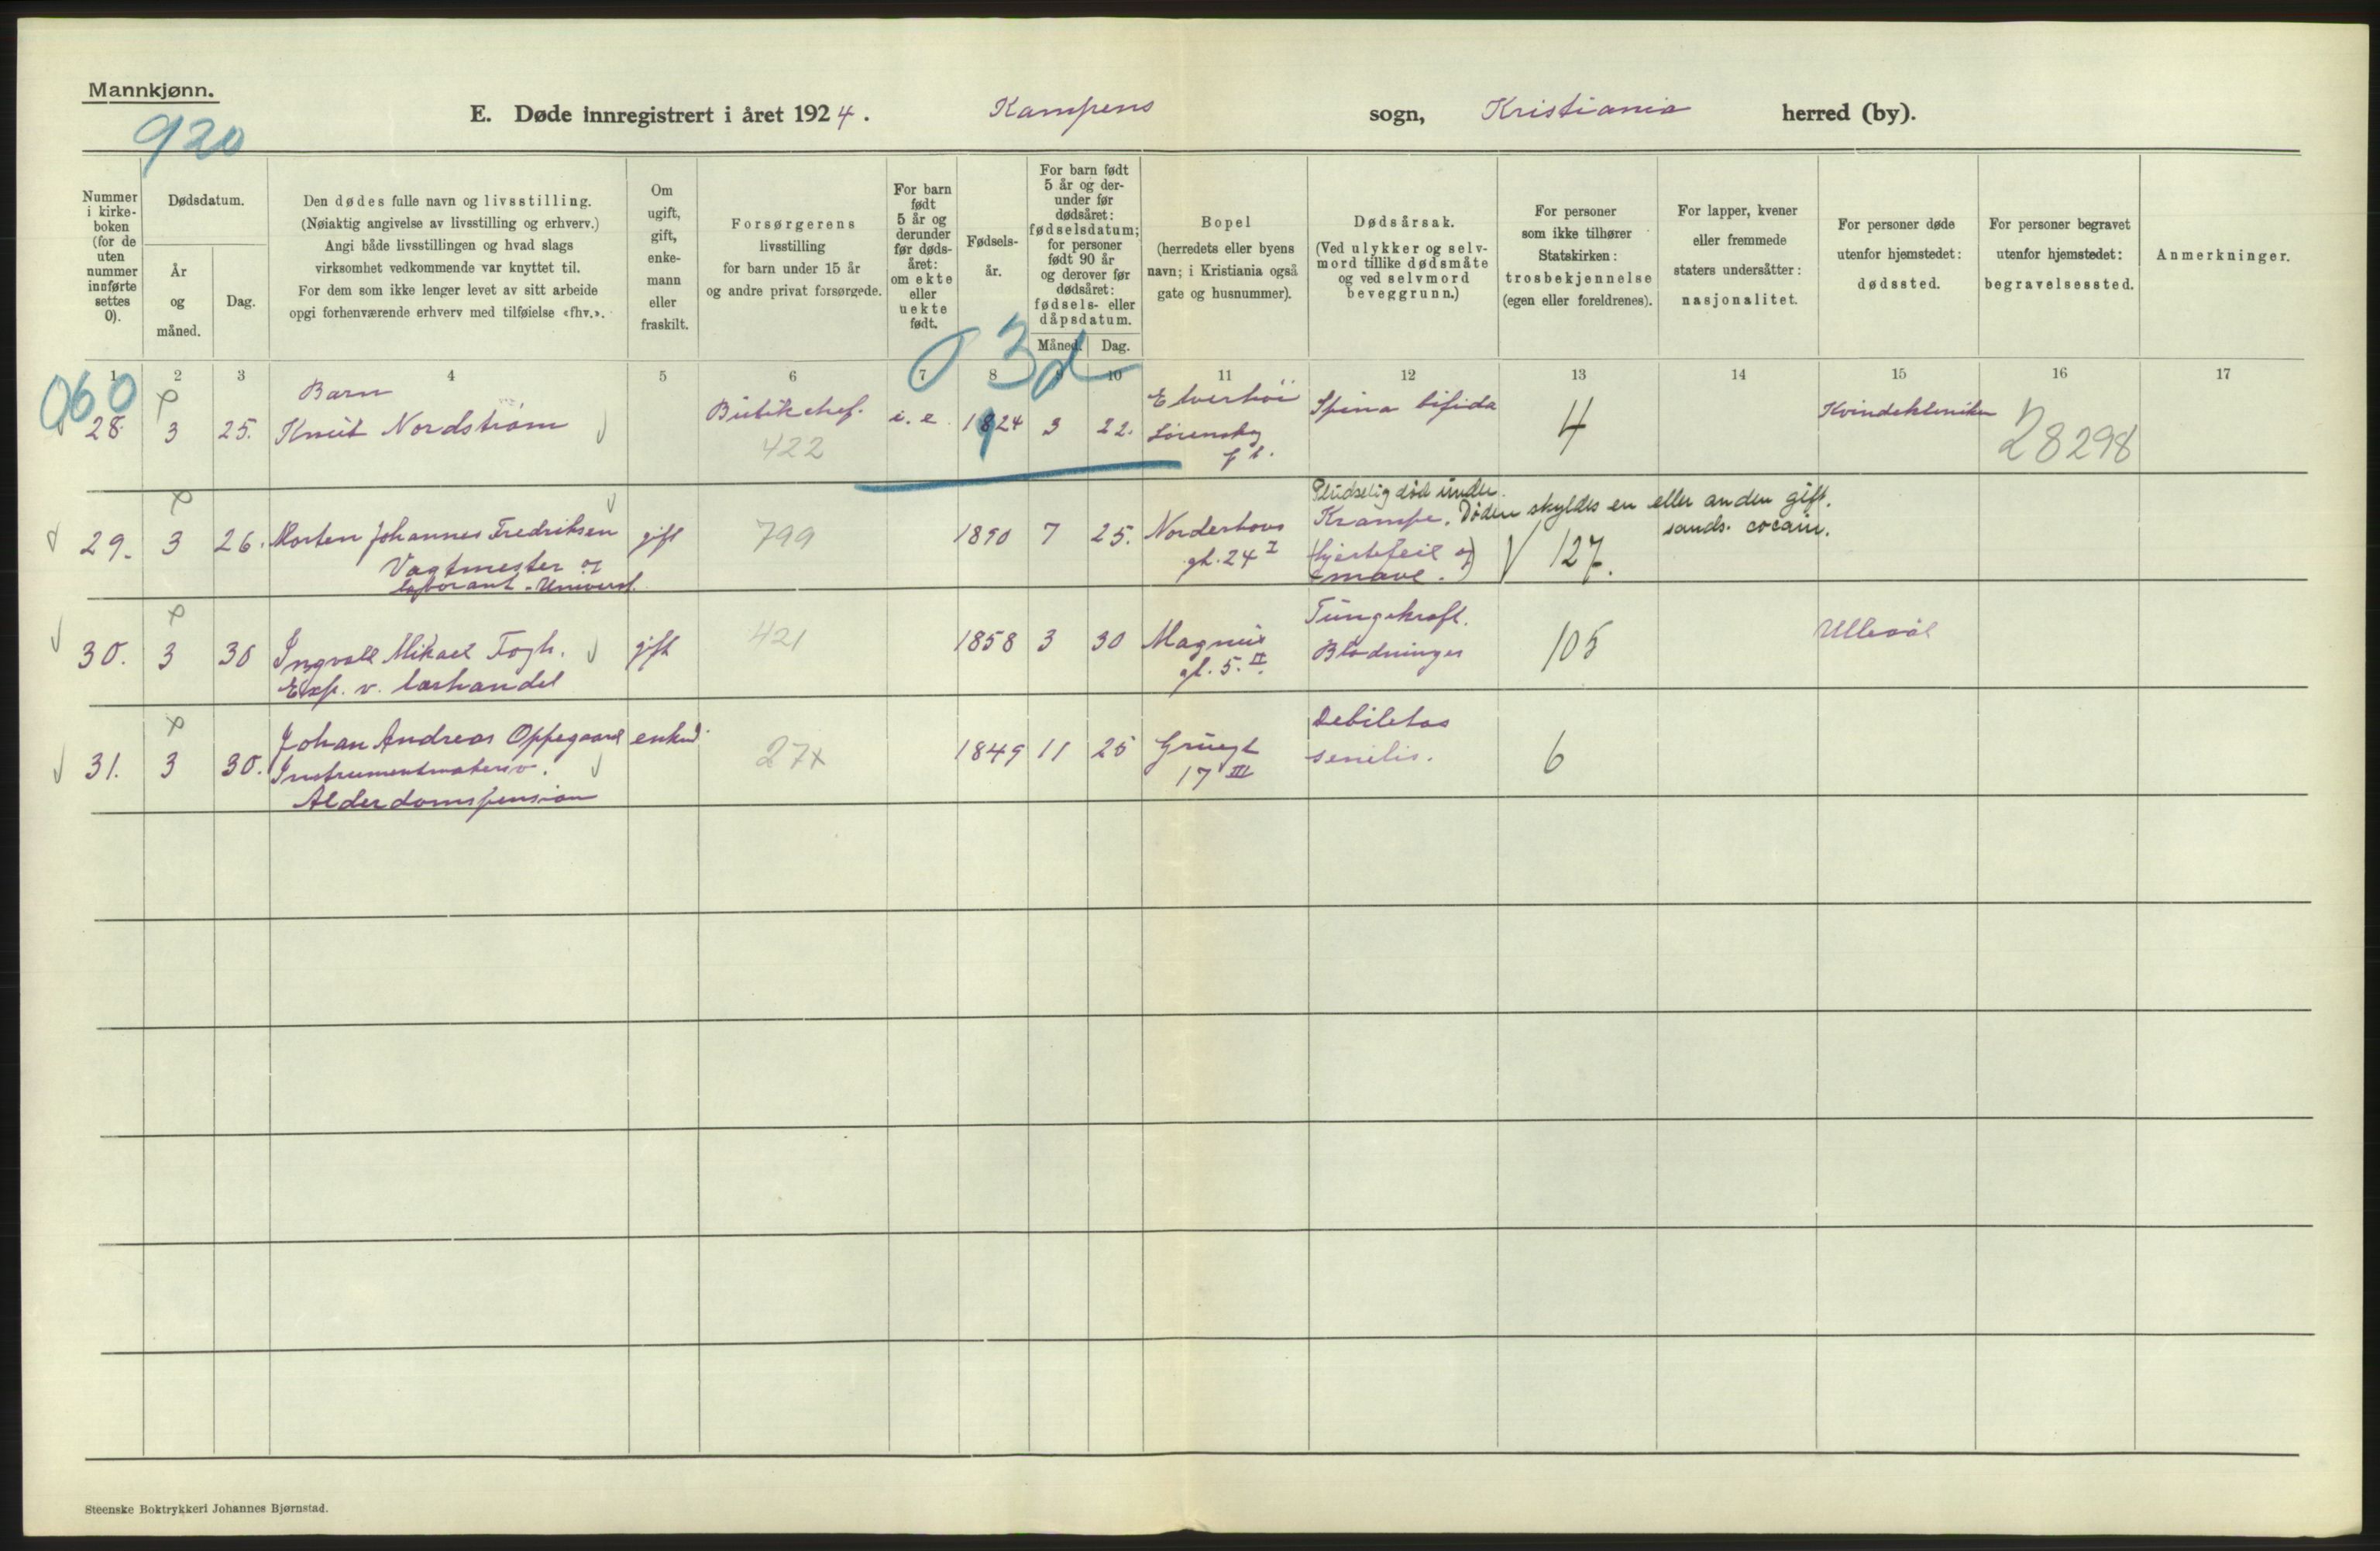 Mannkjønn.
920
E. Døde innregistrert i året 1924. Kampens sogn, Kristiania herred (by).
Nummer
i kirke-
boken
(for de
uten
nummer
innførte
settes
0).
Dødsdatum.
År
og
måned.
Dag.
Den dødes fulle navn og livsstilling.
(Nøiaktig angivelse av livsstilling og erhverv.)
Angi både livsstillingen og hvad slags
virksomhet vedkommende var knyttet til.
For dem som ikke lenger levet av sitt arbeide
opgi forhenværende erhverv med tilføielse «fhv.».
Om
ugift,
gift,
enke-
mann
eller
fraskilt.
Forsørgerens
livsstilling
for barn under 15 år
og andre privat forsørgede.
For barn
født
5 år og
derunder
før døds-
året:
om ekte
eller
uekte
født.
Fødsels-
år.
For barn født
5 år og der-
under før
dødsåret:
fødselsdatum;
for personer
født 90 år
og derover før
dødsåret:
fødsels- eller
dåpsdatum.
Måned. Dag.
Bopel
(herredets eller byens
navn; i Kristiania også
gate og husnummer).
Dødsårsak.
(Ved ulykker og selv-
mord tillike dødsmåte
og ved selvmord
beveggrunn.)
For personer
som ikke tilhører
Statskirken:
trosbekjennelse
(egen eller foreldrenes).
For lapper, kvener
eller fremmede
staters undersåtter:
nasjonalitet.
For personer døde
utenfor hjemstedet:
dødssted.
For personer begravet
utenfor hjemstedet:
begravelsessted.
Anmerkninger.
1 2 3 4 5 6 7 8 9 10 11 12 13 14 15 16 17
060 0 3d
Barn
28 3 25. Knut Nordstrøm Butikchef. i. e. 1924 3 22. Elverhöi Spina bifida 4 Kvindekliniken 28298
422 Lørenskog
29. 3 26. Morten Johannes Fredriksen gift 799 1890 7 25. Norderhovs Pludselig død under
Vagtmester og gt. 24 I Krampe. Døden skyldes en eller anden gift.
laborant - Universt. sands. cocain.
(Hjertefeil og
mave.) V 127.
30. 3 30 Ingvald Mikael Fogh. gift 421 1858 3 30 Magnus Tungekræft. 105 Ullevål
Exp. v. lærhandel gt. 5. II Blødninger
31. 3 30. Johan Andreas Oppegaard enkm. 27x 1849 11 25 Grüegt Debilitas 6
17 III senilis.
Alderdomspension
Steenske Boktrykkeri Johannes Bjørnstad.